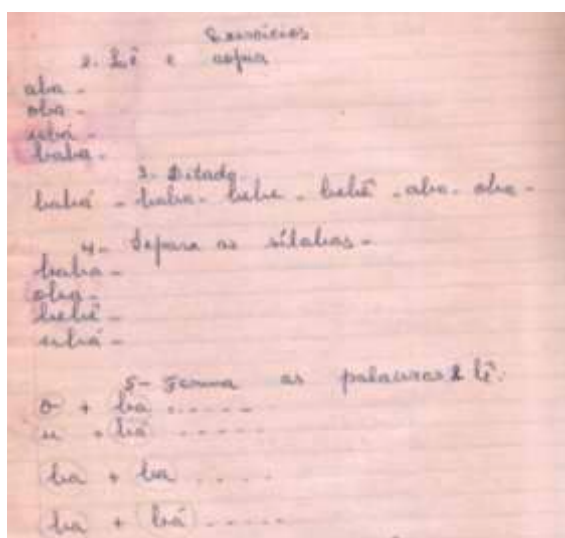 Exercícios
2. Lê e copia
aba -
oba -
ubá -
baba -
3- Ditado -
babá - baba - bebe - bebê - aba - oba -
4- Separa as sílabas -
baba -
oba -
bebê -
ubá -
5- Forma as palavras e lê.
o + ba . . . . .
u + bá . . . . .
ba + ba . . . .
ba + bá . . . . .